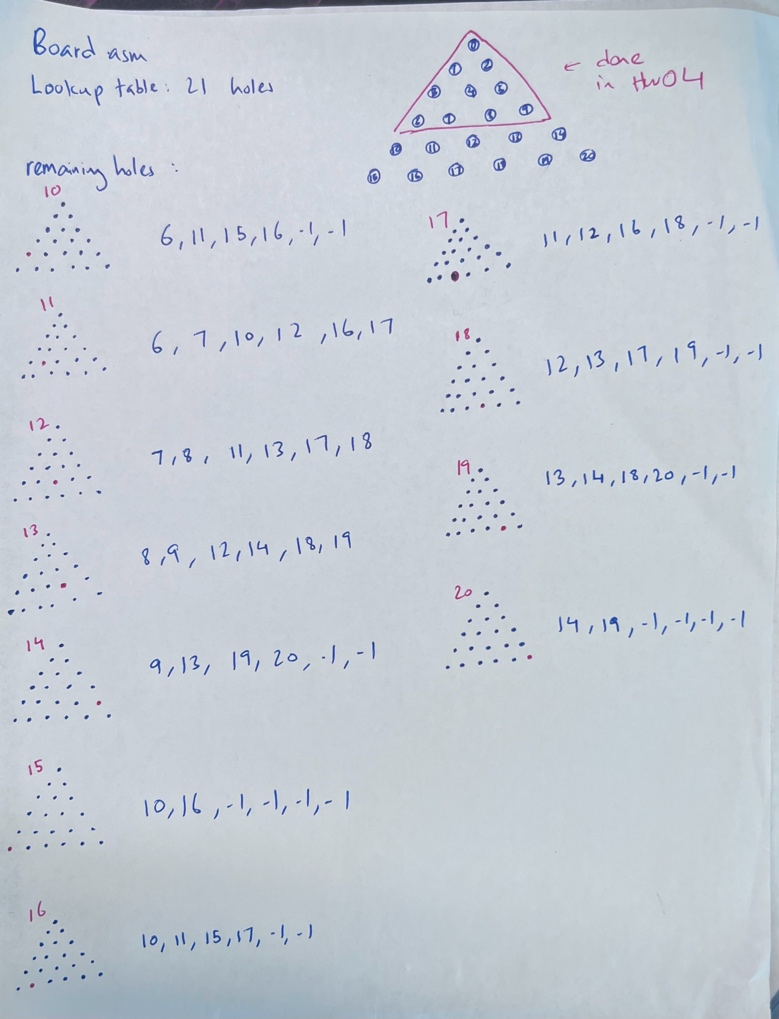 Board asm
Lookup table: 21 holes
← done
in HW04
0
1 2
3 4 5
6 7 8 9
10 11 12 13 14
15 16 17 18 19 20
remaining holes:
10
6, 11, 15, 16, -1, -1
11
6, 7, 10, 12, 16, 17
12
7, 8, 11, 13, 17, 18
13
8, 9, 12, 14, 18, 19
14
9, 13, 19, 20, -1, -1
15
10, 16, -1, -1, -1, -1
16
10, 11, 15, 17, -1, -1
17
11, 12, 16, 18, -1, -1
18
12, 13, 17, 19, -1, -1
19
13, 14, 18, 20, -1, -1
20
14, 19, -1, -1, -1, -1